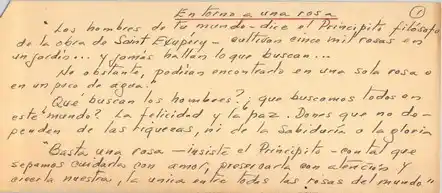 En torno a una rosa
1
"Los hombres de tu mundo - dice el Principito filósofo
de la obra de Saint Exupéry - cultivan cinco mil rosas en
un jardín... y jamás hallan lo que buscan...
No obstante, podrían encontrarlo en una sola rosa o
en un poco de agua".
¿Que buscan los hombres?, ¿que buscamos todos en
este mundo? La felicidad y la paz. Dones que no de-
penden de las riquezas, ni de la Sabiduría o la gloria
"Basta una rosa - insiste el Principito - con tal que
sepamos cuidarla con amor, preservarla con atención y
creerla nuestra, la unica entre todas las rosas del mundo"